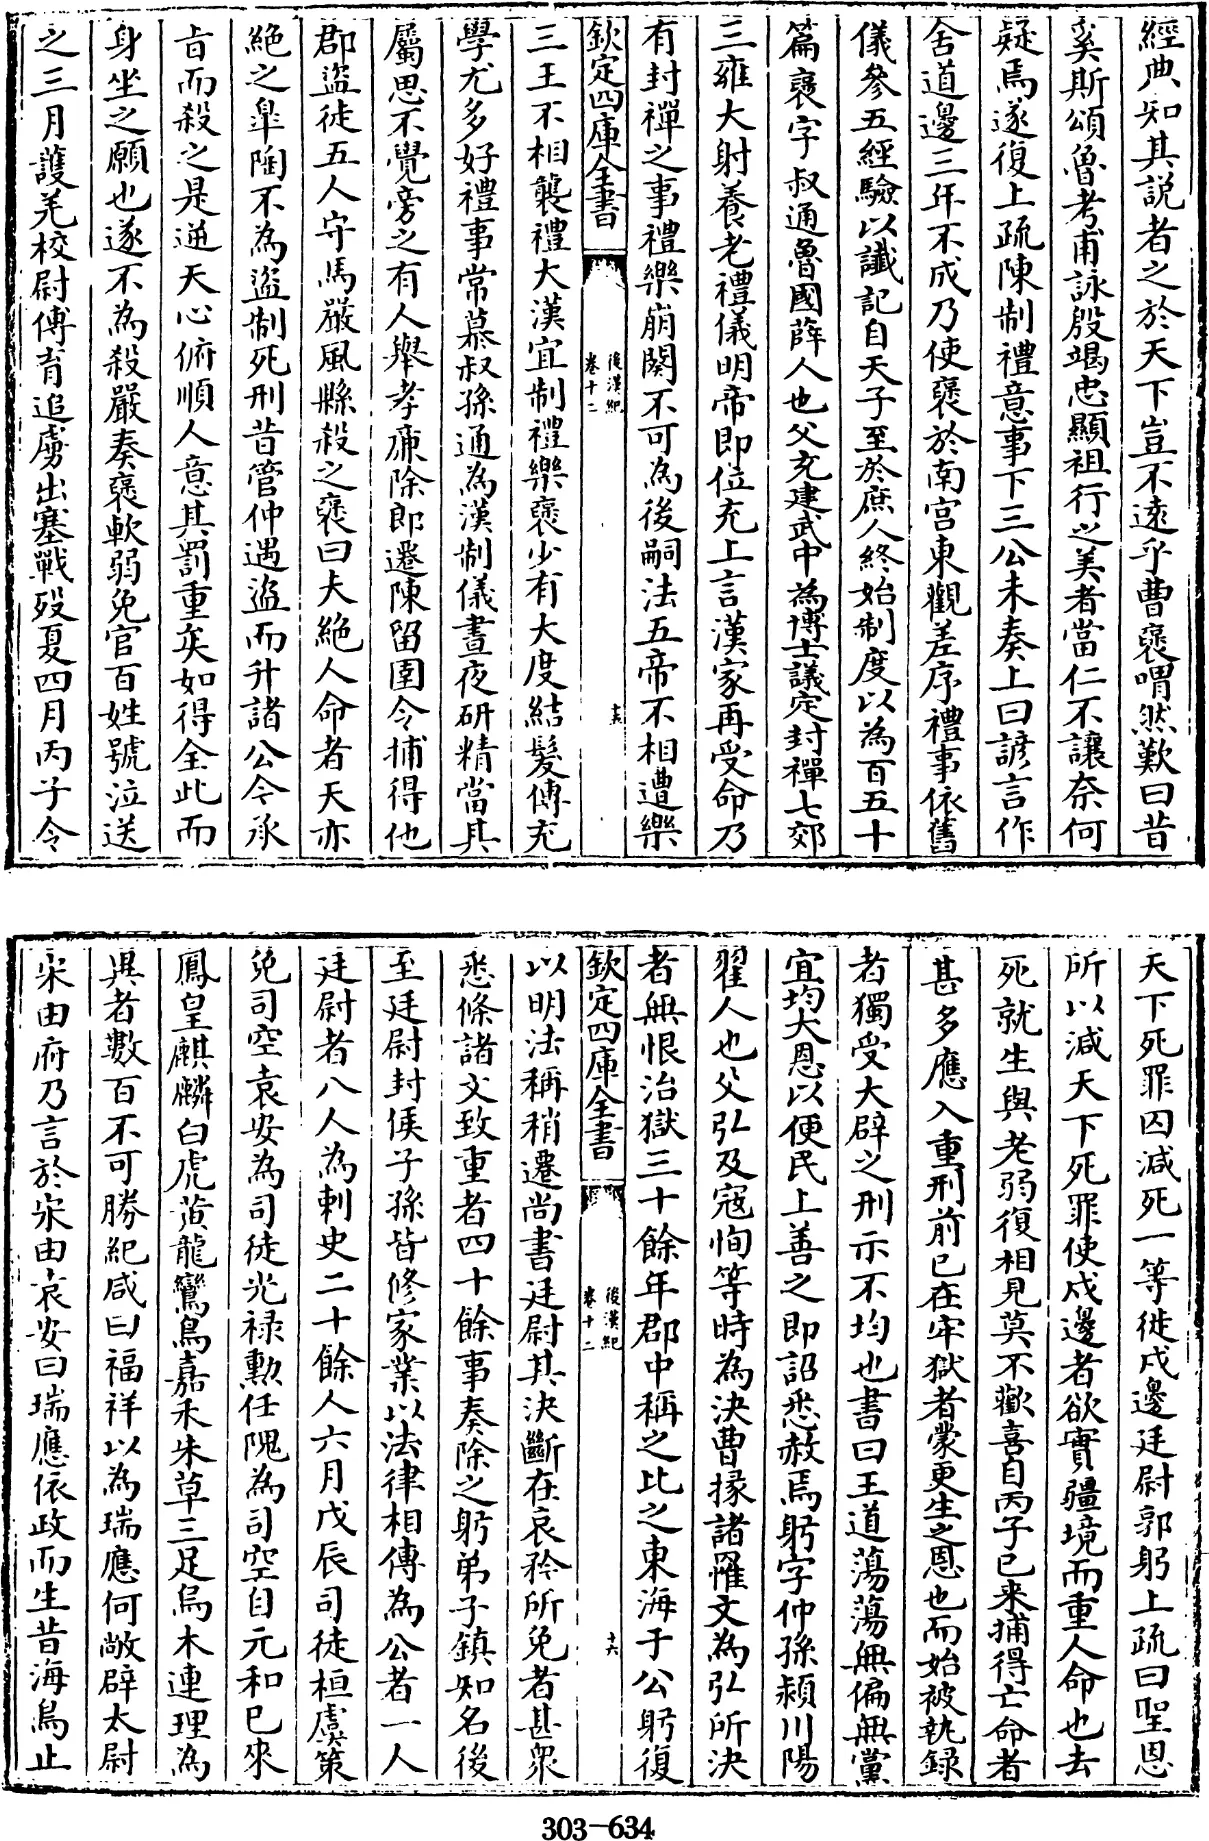 經典知其説者之於天下豈不遠乎曹襃喟然歎曰昔
奚斯頌魯考甫詠殷竭忠顯祖行之美者當仁不讓奈何
疑焉遂復上疏陳制禮意事下三公未奏上曰諺言作
舍道邊三年不成乃使襃於南宫東觀差序禮事依舊
儀參五經驗以讖記自天子至於庶人終始制度以為百五十
篇襃字叔通魯國薛人也父充建武中為博士議定封禪七郊
三雍大射養老禮儀明帝即位充上言漢家再受命乃
有封禪之事禮樂崩闋不可為後嗣法五帝不相遭樂
欽定四庫全書
後漢紀
卷十二
十五
三王不相襲禮大漢宜制禮樂襃少有大度結髮傳充
學尤多好禮事常慕叔孫通為漢制儀晝夜研精當其
屬思不覺旁之有人舉孝亷除郎遷陳留圉令捕得他
郡盜徒五人守馬嚴風縣殺之襃曰夫絶人命者天亦
絶之臯陶不為盜制死刑昔管仲遇盜而升諸公今承
㫖而殺之是逆天心俯順人意其罰重矣如得全此而
身坐之願也遂不為殺嚴奏襃軟弱免官百姓號泣送
之三月護羌校尉傅育追虜出塞戰殁夏四月丙子令
天下死罪囚減死一等徙戍邊廷尉郭躬上疏曰聖恩
所以減天下死罪使戍邊者欲實疆境而重人命也去
死就生與老弱復相見莫不歡喜自丙子已来捕得亡命者
甚多應入重刑前已在牢獄者蒙更生之恩也而始被執録
者獨受大辟之刑示不均也書曰王道蕩蕩無偏無黨
宜均大恩以便民上善之即詔悉赦焉躬字仲孫潁川陽
翟人也父弘及寇恂等時為決曹掾諸罹文為弘所決
者無恨治獄三十餘年郡中稱之比之東海于公躬復
欽定四庫全書
後漢紀
卷十二
十六
以明法稱稍遷尚書廷尉其決斷在哀矜所免者甚衆
悉條諸文致重者四十餘事奏除之躬弟子鎮知名後
至廷尉封侯子孫皆修家業以法律相傳為公者一人
廷尉者八人為刺史二十餘人六月戊辰司徒桓虞策
免司空袁安為司徒光祿勲任隗為司空自元和已來
鳳皇麒麟白虎黄龍鸞鳥嘉禾朱草三足烏木連理為
異者數百不可勝紀咸曰福祥以為瑞應何敞辟太尉
宋由府乃言於宋由袁安曰瑞應依政而生昔海鳥止
303-634